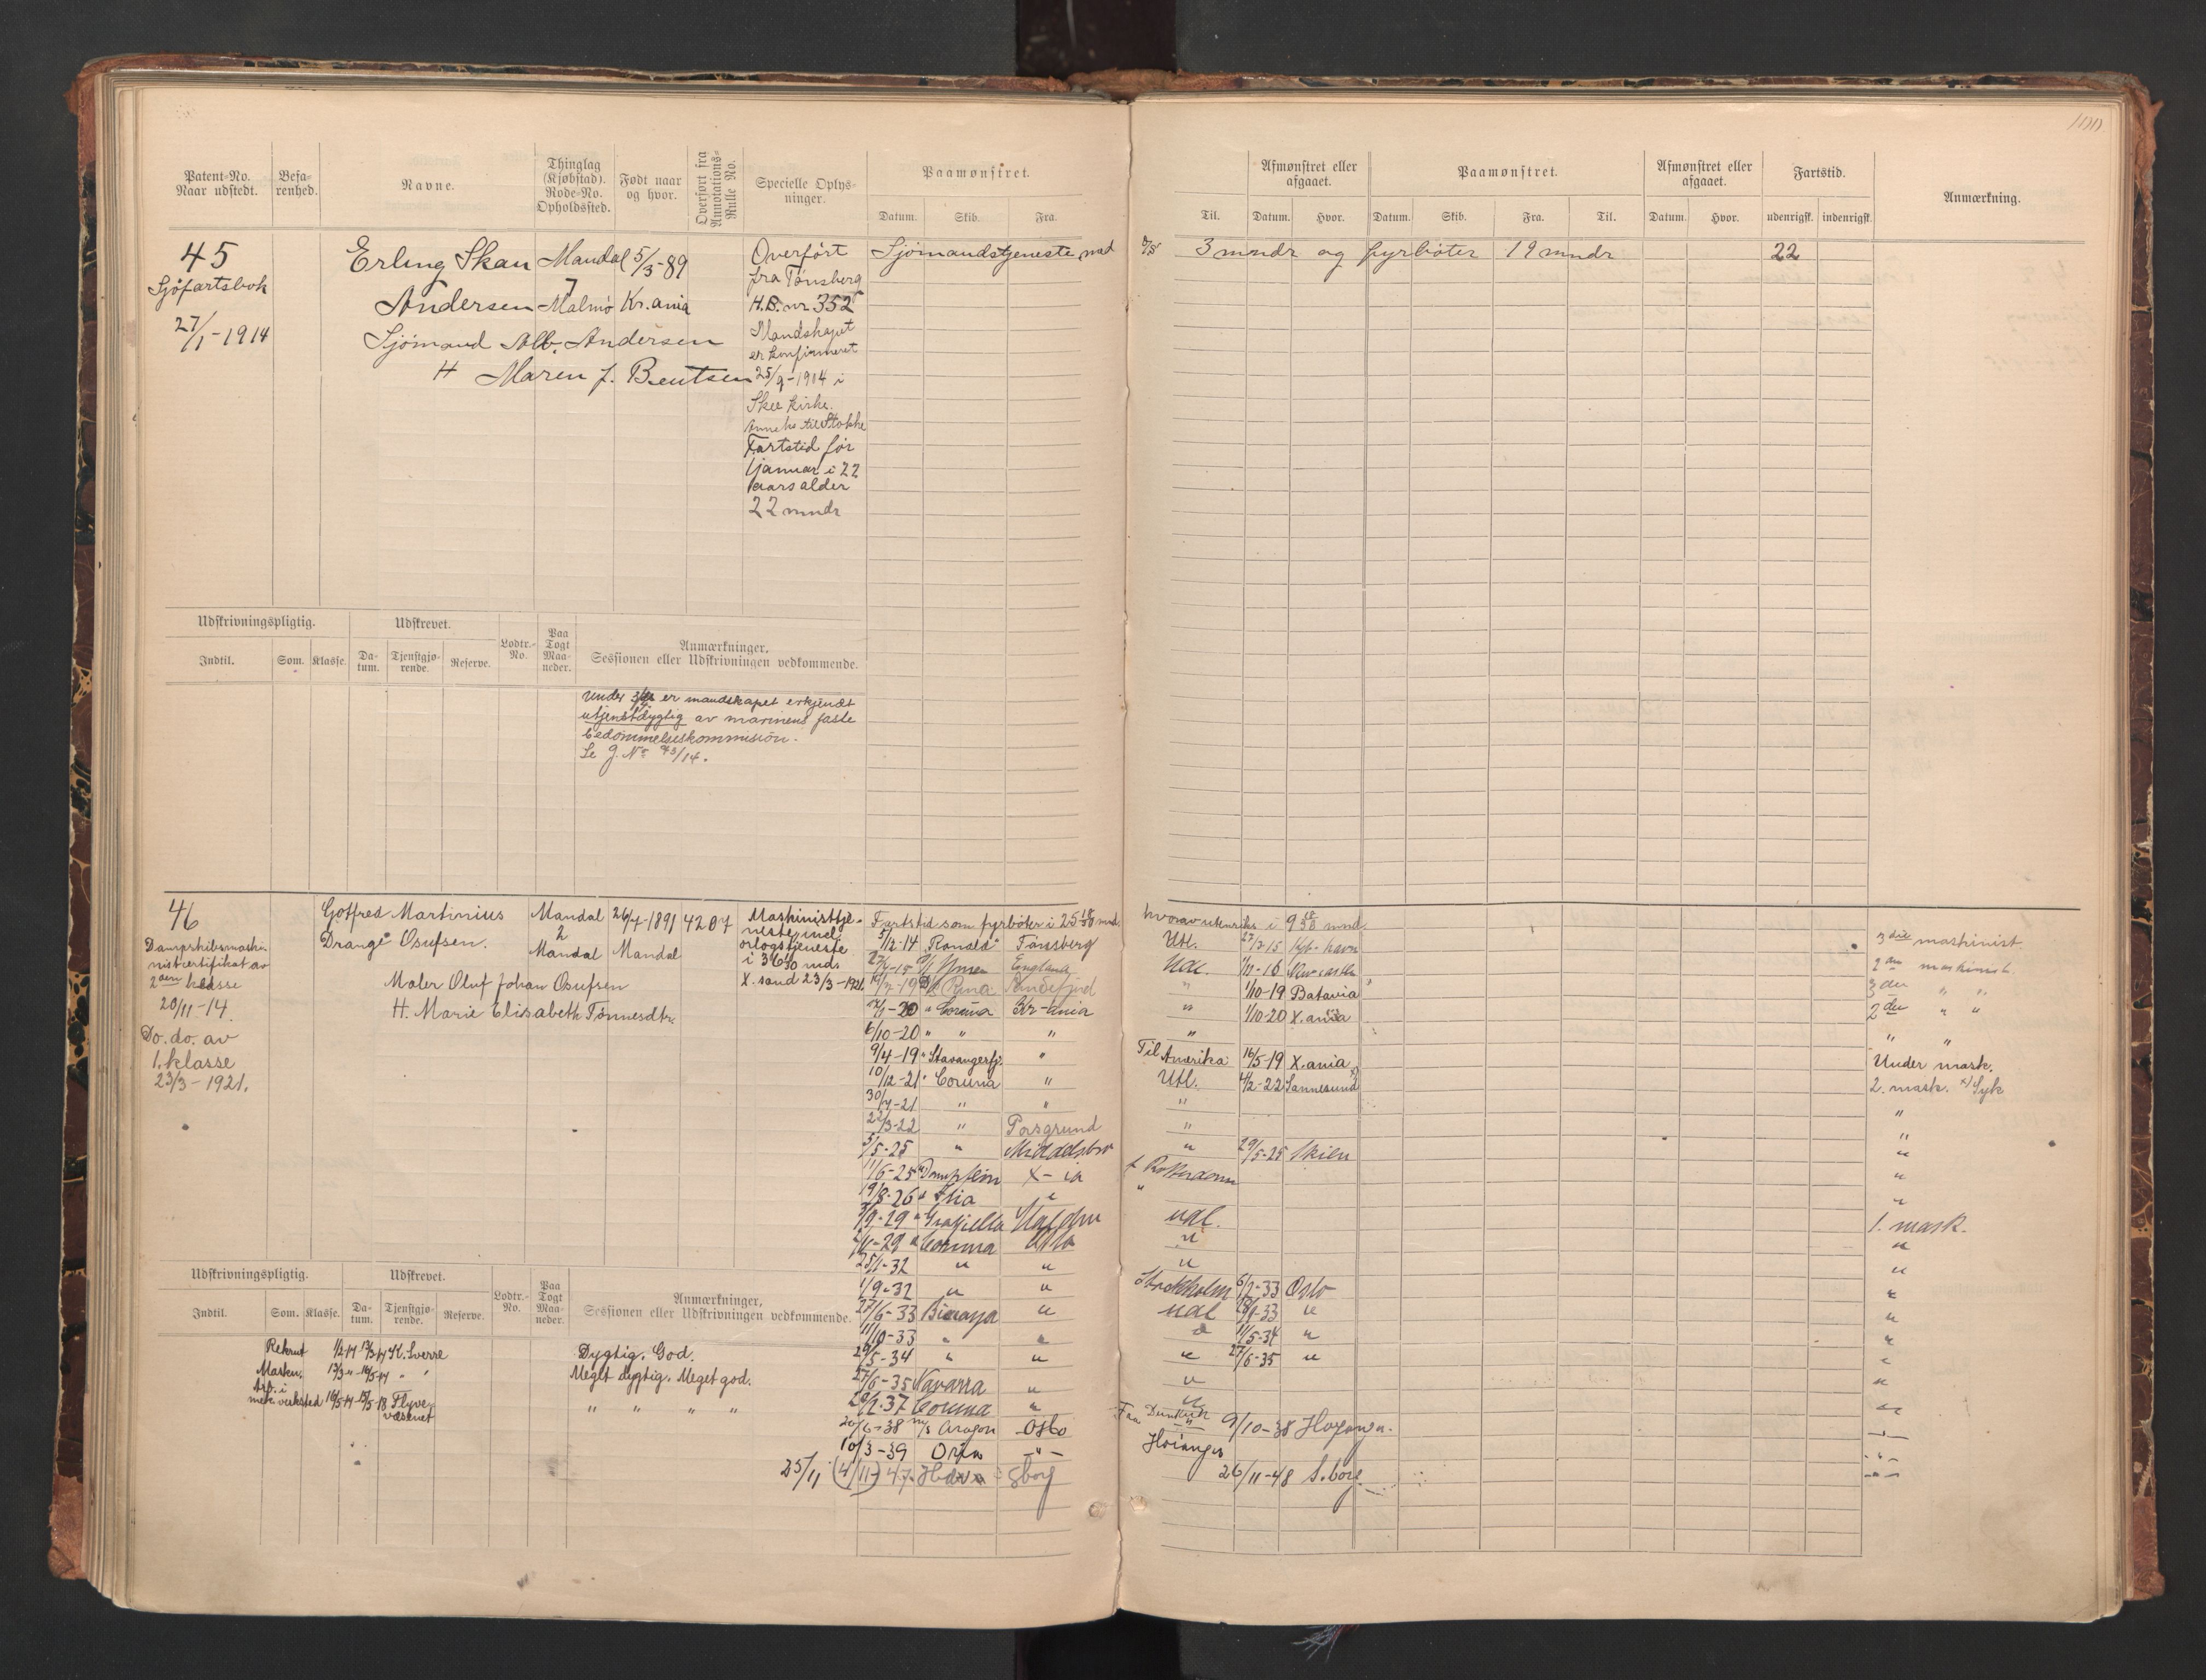 100
Patent-No. Naar udstedt.
Befa-renhed.
Navne.
Thinglag (Kjøbstad). Rode-No. Opholdssted.
Født naar og hvor.
Overført fra Annotations-Rulle No.
Specielle Oplysninger.
Paamønstret.
Datum. Skib. Fra.
Til.
Afmønstret eller afgaaet.
Datum. Hvor.
Paamønstret.
Datum. Skib. Fra. Til.
Afmønstret eller afgaaet.
Datum. Hvor.
Fartstid.
udenrigsk. indenrigsk.
Anmærkning.
45
Sjøfartsbok
27/1-1914
Erling Skau
Andersen
Sjømand Alb. Andersen
H Maren J. Bentsen
Mandal
7
Malmø
5/3-89
Kr.ania
Overført
fra Tønsberg
H.B. nr 352
Mandskapet
er konfirmeret
25/9-1904 i
Skee kirke.
Anneks til Stokke
Fartstid før
1 januar i 22
aars alder
22 mndr
Sjømandstjeneste med
3 mndr og fyrbøter 19 mndr
22
Udskrivningspligtig.
Indtil. Som. Klasse.
Udskrevet.
Da-tum. Tjenstgjø-rende. Reserve.
Lodtr.-No.
Paa Togt Maa-neder.
Anmærkninger, Sessionen eller Udskrivningen vedkommende.
er mandskapet erkjendt
utjenstdygtig av marinens faste
bedømmelseskommision.
Se J. No 93/14.
46
Dampskibsmaski-
nistcertifikat av
2den klasse
20/11-14.
Do. do. av
1. klasse
23/3-1921.
Gotfred Martinius
Drange Osufsen.
Maler Oluf Johan Osufsen
H. Marie Elisabeth Tønnesdtr.
Mandal
2
Mandal
26/7-1891
Mandal
4207
Maskinisttje-
neste incl.
orlogstjeneste
i 36 mnds
X. sand 23/3-1921.
Fartstid som fyrbøter i 25 mnd. hvorav utenriks i 9 mnd.
5/12-14 "Ronald" Tønsberg Utl. 27/3-15 Kjb-havn 3die maskinist.
Ymer England Udl. Newcastle 2den maskinist.
Rena Sandefjord " 1/10-19 Batavia 3die " "
" Coruna Kr-ania " 1/10-20 X.ania 2den " "
6/10-20 " " " " " "
9/4-19 " Stavangerfj. " Til Amerika 16/5-19 X.ania Under mask.
10/12-21 " Coruna " Utl. 4/2-22 Sannesund x) 2. mask. x) Syk
30/7-21 " " " "
22/3-22 " Porsgrund " "
5/5-25 " Middelsbro " 29/5-25 Skien "
11/6-25 X-ia t. Rotterdam "
19/8-26 " " "
9-29 " Graziella udl. 1. mask.
-29 " Coruna Oslo " "
25/1-32 " " " "
1/9-32 " " Stockholm 6/2-33 Oslo "
27/6-33 " udl -33 " "
11/10-33 " " " 11/5-34 " "
5-34 " " " 27/6-35 " "
27/6-35 Navarra " " "
-37 Coruna " " "
-38 m/s Aragon Oslo Fra Dunkirk 9/10-38
10/3-39 -"- Høianger -"-
25/11 (4/11) 47 Sborg 26/11-48 S.borg. -"-
Udskrivningspligtig.
Indtil. Som. Klasse.
Udskrevet.
Da-tum. Tjenstgjø-rende. Reserve.
Lodtr.-No.
Paa Togt Maa-neder.
Anmærkninger, Sessionen eller Udskrivningen vedkommende.
Rekrut K. Sverre Dygtig. God.
Maskin. " " Meget dygtig. Meget god.
Arb. i
mek. verksted Flyve-
væsenet " " " "